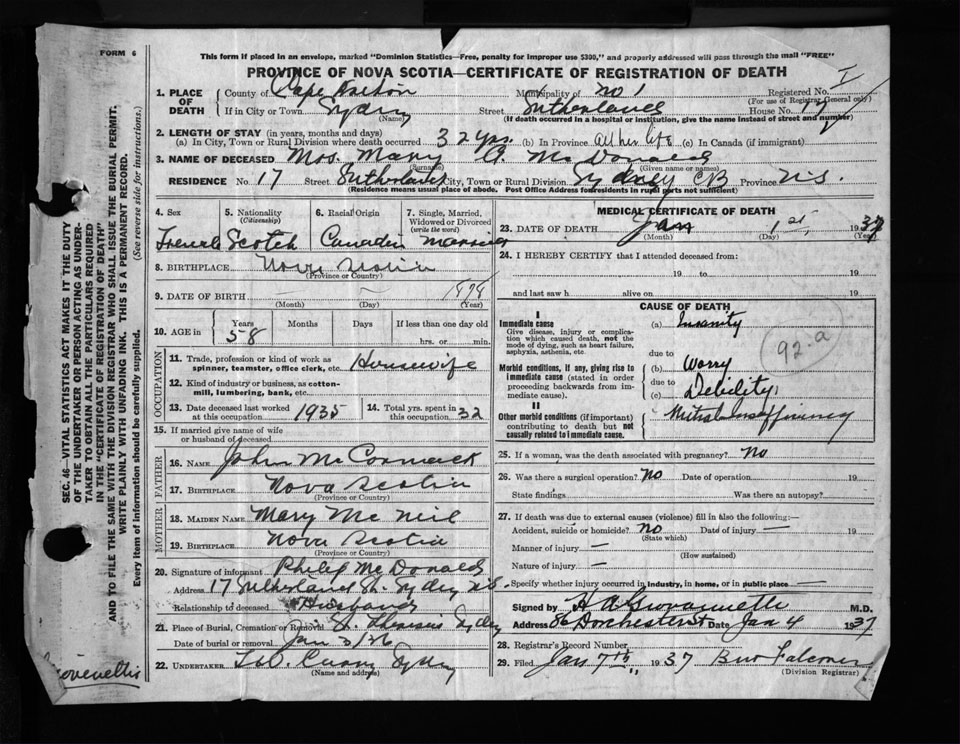 FORM 6
This form if placed in an envelope, marked "Dominion Statistics—Free, penalty for improper use $300," and properly addressed will pass through the mail "FREE"
PROVINCE OF NOVA SCOTIA—CERTIFICATE OF REGISTRATION OF DEATH
1. PLACE OF DEATH
County of Cape Breton Municipality of no 1 Registered No.
(For use of Registrar General only)
If in City or Town Sydney Street Sutherland House No. 17
(Name)
(If death occurred in a hospital or institution, give the name instead of street and number)
2. LENGTH OF STAY (in years, months and days)
(a) In City, Town or Rural Division where death occurred 32 yrs. (b) In Province all her life (c) In Canada (if immigrant)
3. NAME OF DECEASED Mrs. Mary McDonald
(Surname) (Given name or names)
RESIDENCE No 17 Street Sutherland City, Town or Rural Division Sydney CB Province N.S.
(Residence means usual place of abode. Post Office Address for residents in rural parts not sufficient)
4. Sex 5. Nationality (Citizenship) 6. Racial Origin 7. Single, Married, Widowed or Divorced (write the word)
Female Scotch Canadian Married
8. BIRTHPLACE Nova Scotia
(Province or Country)
9. DATE OF BIRTH — — 1878
(Month) (Day) (Year)
10. AGE in Years Months Days If less than one day old
58 hrs. or min.
OCCUPATION
11. Trade, profession or kind of work as spinner, teamster, office clerk, etc. Housewife
12. Kind of industry or business, as cotton-mill, lumbering, bank, etc.
13. Date deceased last worked at this occupation 1935 14. Total yrs. spent in this occupation 32
15. If married give name of wife or husband of deceased
FATHER
16. NAME John McCormack
17. BIRTHPLACE Nova Scotia
(Province or Country)
MOTHER
18. MAIDEN NAME Mary McNeil
19. BIRTHPLACE Nova Scotia
(Province or Country)
20. Signature of informant Philip McDonald
Address 17 Sutherland St. Sydney N.S.
Relationship to deceased Husband
21. Place of Burial, Cremation or Removal Sydney
Date of burial or removal Jan 3/36
22. UNDERTAKER Curry Sydney
(Name and address)
MEDICAL CERTIFICATE OF DEATH
23. DATE OF DEATH Jan 1st, 1937
(Month) (Day) (Year)
24. I HEREBY CERTIFY that I attended deceased from:
19 to 19
and last saw h alive on 19
CAUSE OF DEATH
I
Immediate cause (a) Insanity
Give disease, injury or complication which caused death, not the mode of dying, such as heart failure, asphyxia, asthenia, etc.
due to
Morbid conditions, if any, giving rise to immediate cause (stated in order proceeding backwards from immediate cause).
(b) Worry
due to
(c) Debility
92-a
II
Other morbid conditions (if important) contributing to death but not causally related to immediate cause.
Mitral insufficiency
25. If a woman, was the death associated with pregnancy? No
26. Was there a surgical operation? No Date of operation 19
State findings Was there an autopsy?
27. If death was due to external causes (violence) fill in also the following:—
Accident, suicide or homicide? no Date of injury — 19
(State which)
Manner of injury —
(How sustained)
Nature of injury —
Specify whether injury occurred in industry, in home, or in public place —
Signed by M.D.
Address 86 Dorchester St Date Jan 4 1937
28. Registrar's Record Number
29. Filed Jan 7th, 1937 Falconer
(Division Registrar)
SEC. 46—VITAL STATISTICS ACT MAKES IT THE DUTY
OF THE UNDERTAKER OR PERSON ACTING AS UNDERTAKER TO OBTAIN ALL THE PARTICULARS REQUIRED
IN THE "CERTIFICATE OF REGISTRATION OF DEATH"
AND TO FILE THE SAME WITH THE DIVISION REGISTRAR WHO SHALL ISSUE THE BURIAL PERMIT.
WRITE PLAINLY WITH UNFADING INK. THIS IS A PERMANENT RECORD.
Every item of information should be carefully supplied. (See reverse side for instructions.)